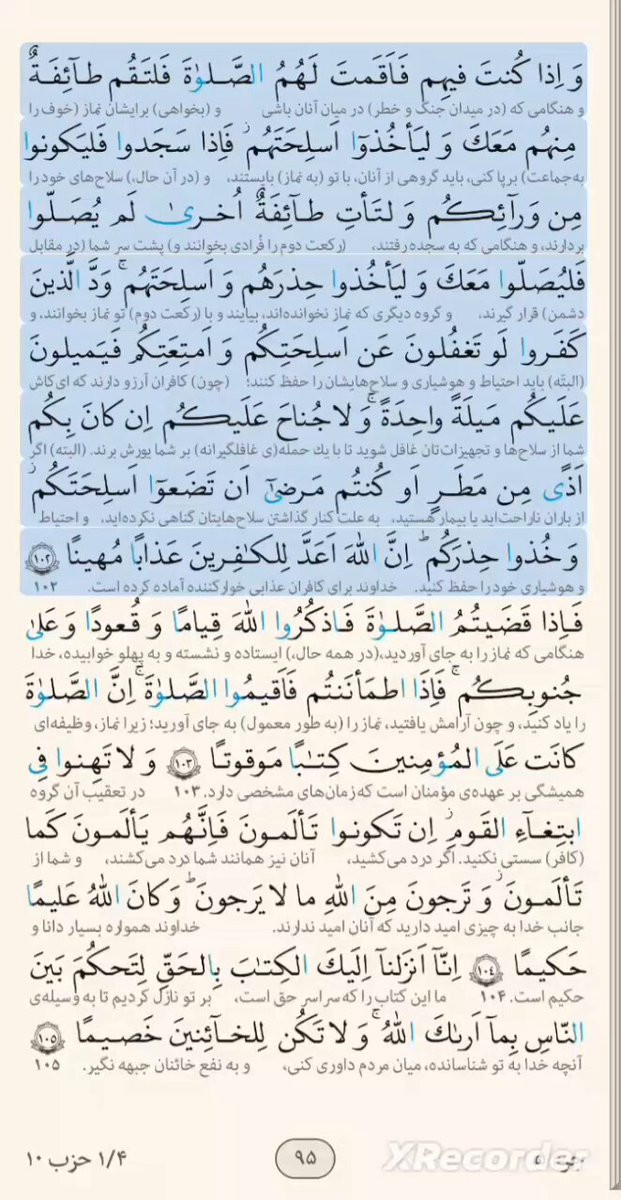 وَ اِذا كُنتَ فيهِم فَاَقَمتَ لَهُمُ الصَّلوٰةَ فَلتَقُم طآئِفَةٌ
و هنگامی که (در میدان جنگ و خطر) در میان آنان باشی و (بخواهی) برایشان نماز (خوف را
مِنهُم مَعَكَ وَ ليَأخُذوٓا اَسلِحَتَهُم ۖ فَاِذا سَجَدوا فَليَكونوا
به‌جماعت) برپا کنی، باید گروهی از آنان، با تو (به نماز) بایستند، و (در آن حال،) سلاح‌های خود را
مِن وَرآئِكُم وَ لتَأتِ طآئِفَةٌ اُخرىٰ لَم يُصَلّوا
بردارند، و هنگامی که به سجده رفتند، (رکعت دوم را فُرادی بخوانند و) پشت سر شما (در مقابل
فَليُصَلّوا مَعَكَ وَ ليَأخُذوا حِذرَهُم وَ اَسلِحَتَهُم ۗ وَدَّ الَّذينَ
دشمن) قرار گیرند، و گروه دیگری که نماز نخوانده‌اند، بیایند و با (رکعت دوم) تو نماز بخوانند، و
كَفَروا لَو تَغفُلونَ عَن اَسلِحَتِكُم وَ اَمتِعَتِكُم فَيَميلونَ
(البته) باید احتیاط و هوشیاری و سلاح‌هایشان را حفظ کنند؛ (چون) کافران آرزو دارند که ای کاش
عَلَيكُم مَيلَةً واحِدَةً ۚ وَ لا جُناحَ عَلَيكُم اِن كانَ بِكُم
شما از سلاح‌ها و تجهیزات‌تان غافل شوید تا با یك حمله‌(ی غافلگیرانه) بر شما یورش برند. (البته) اگر
اَذًى مِن مَطَرٍ اَو كُنتُم مَرضىٰٓ اَن تَضَعوٓا اَسلِحَتَكُم ۖ
از باران ناراحت‌اید یا بیمار هستید، به علت کنار گذاشتن سلاح‌هایتان گناهی نکرده‌اید، و احتیاط
وَ خُذوا حِذرَكُم ۗ اِنَّ اللهَ اَعَدَّ لِلكٰفِرينَ عَذابًا مُهينًا ۱۰۲
و هوشیاری خود را حفظ کنید. خداوند برای کافران عذابی خوارکننده آماده کرده است. ۱۰۲
فَاِذا قَضَيتُمُ الصَّلوٰةَ فَاذكُرُوا اللهَ قِيامًا وَ قُعودًا وَ عَلىٰ
هنگامی که نماز را به جای آوردید،(در همه حال،) ایستاده و نشسته و به پهلو خوابیده، خدا
جُنوبِكُم ۚ فَاِذَا اطمَأنَنتُم فَاَقيمُوا الصَّلوٰةَ ۚ اِنَّ الصَّلوٰةَ
را یاد کنید، و چون آرامش یافتید، نماز را (به طور معمول) به جای آورید؛ زیرا نماز، وظیفه‌ای
كانَت عَلَى المُؤمِنينَ كِتٰبًا مَوقوتًا ۱۰۳ وَ لا تَهِنوا فِى
همیشگی بر عهده‌ی مؤمنان است که زمان‌های مشخصی دارد. ۱۰۳ در تعقیب آن گروه
ابتِغآءِ القَومِ ۖ اِن تَكونوا تَألَمونَ فَاِنَّهُم يَألَمونَ كَما
(کافر) سستی نکنید. اگر درد می‌کشید، آنان نیز همانند شما درد می‌کشند، و شما از
تَألَمونَ ۖ وَ تَرجونَ مِنَ اللهِ ما لا يَرجونَ ۗ وَ كانَ اللهُ عَليمًا
جانب خدا به چیزی امید دارید که آنان امید ندارند. خداوند همواره بسیار دانا و
حَكيمًا ۱۰۴ اِنّآ اَنزَلنآ اِلَيكَ الكِتٰبَ بِالحَقِّ لِتَحكُمَ بَينَ
حکیم است. ۱۰۴ ما این کتاب را که سراسر حق است، بر تو نازل کردیم تا به وسیله‌ی
النّاسِ بِمآ اَرىٰكَ اللهُ ۚ وَ لا تَكُن لِلخآئِنينَ خَصيمًا ۱۰۵
آنچه خدا به تو شناسانده، میان مردم داوری کنی، و به نفع خائنان جبهه نگیر. ۱۰۵
جزء ۵ ۹۵ ۱/۴ حزب ۱۰
XRecorder